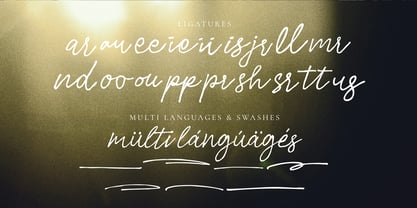 LIGATURES
ar au ee ie ii is jr ll mr
nd oo ou pp pr sh sr tt us
MULTI LANGUAGES & SWASHES
mülti lángúägés